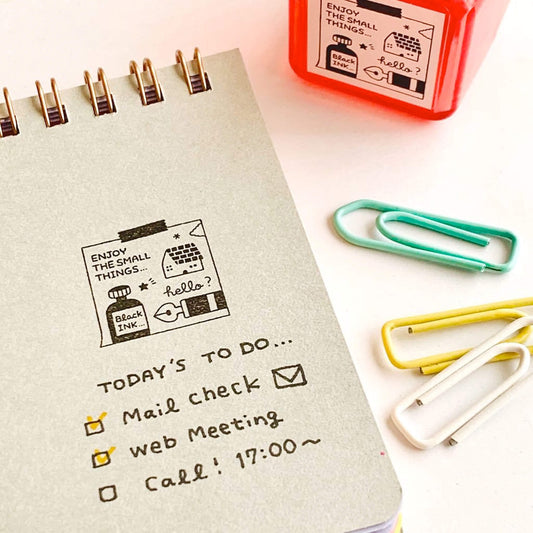 ENJOY
THE SMALL
THINGS...
hello?
Black
INK...
ENJOY
THE SMALL
THINGS...
hello?
Black
INK...
TODAY'S TO DO...
Mail check
Web Meeting
Call! 17:00~